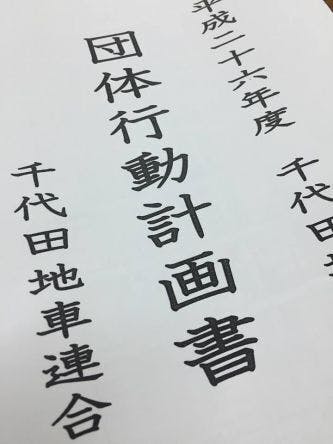 平成二十六年度
千代田地
団体行動計画書
千代田地車連合